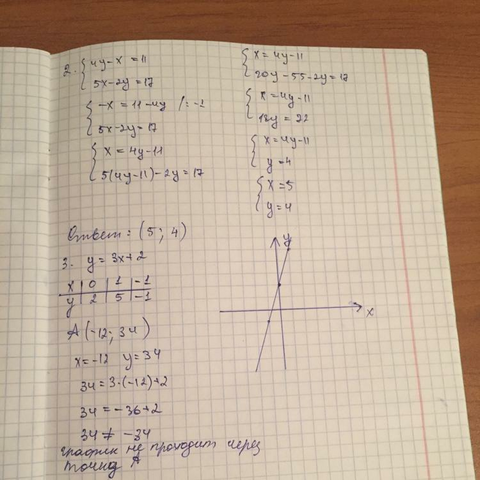 2. { 4y-x=11
5x-2y=17
{ -x=11-4y /:-1
5x-2y=17
{ x=4y-11
5(4y-11)-2y=17
{ x=4y-11
20y-55-2y=17
{ x=4y-11
18y=72
{ x=4y-11
y=4
{ x=5
y=4
Ответ: (5; 4)
3. y=3x+2
x | 0 | 1 | -1
y | 2 | 5 | -1
A(-12; 34)
x=-12 y=34
34=3·(-12)+2
34=-36+2
34≠-34
график не проходит через
точку A
y
x